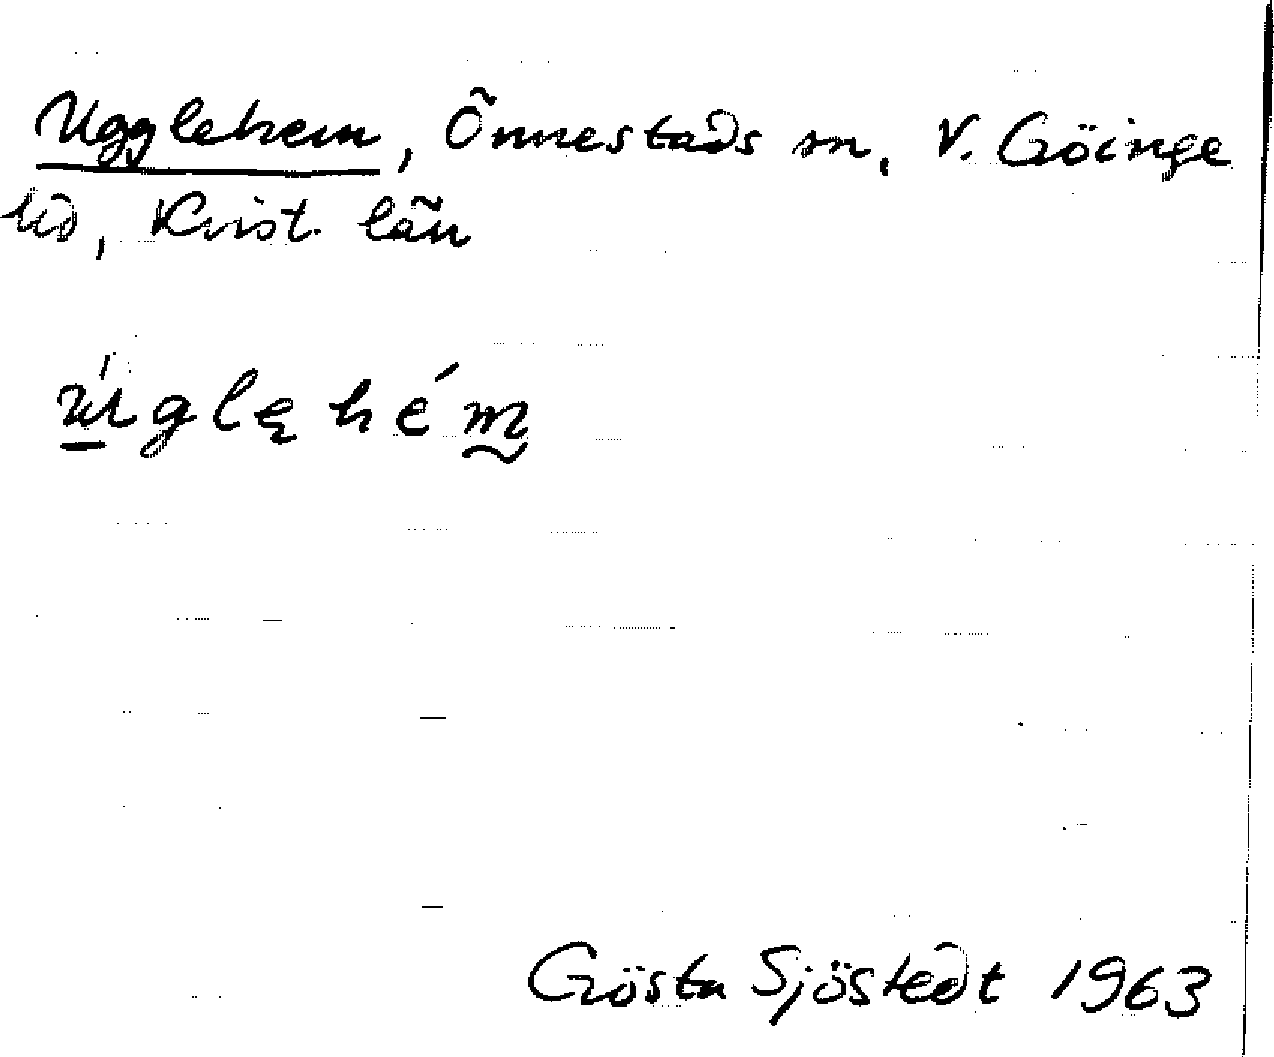 Ugglehem, Önnestads sn, V. Göinge
hd, Krist. län
úglęhém
Gösta Sjöstedt 1963